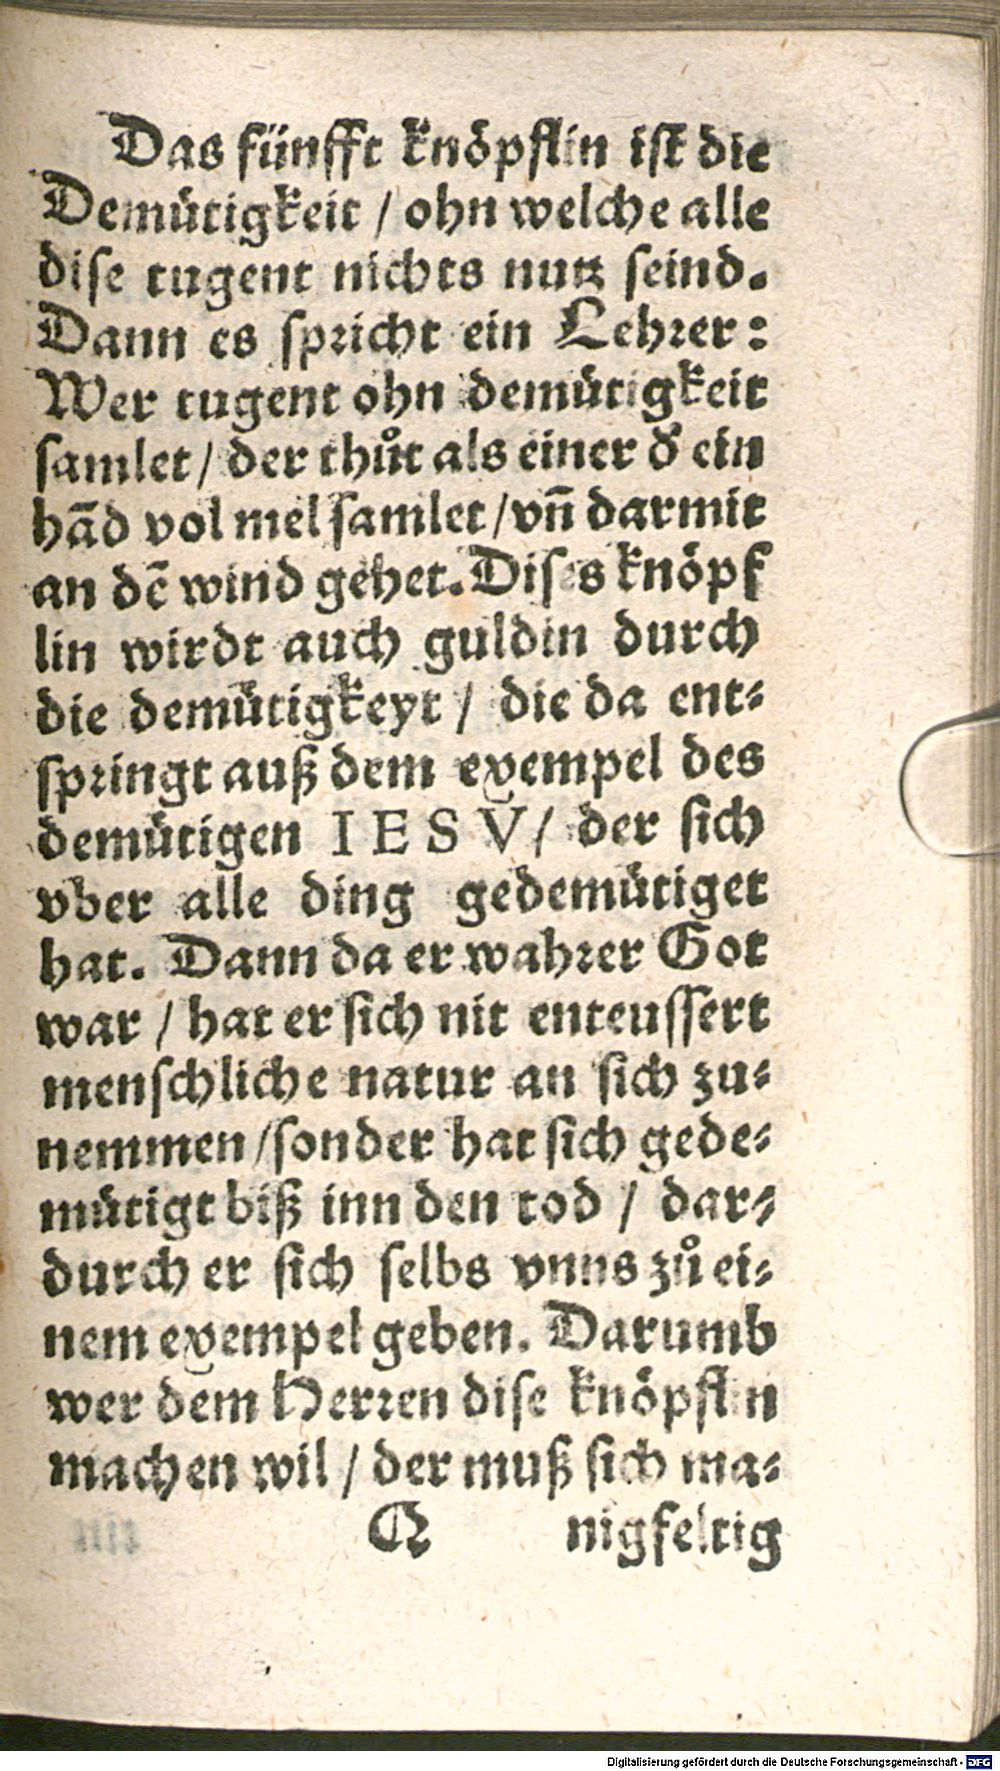 Das fünfft knöpflin ist die
Demütigkeit / ohn welche alle
dise tugent nichts nutz seind.
Dann es spricht ein Lehrer:
Wer tugent ohn demütigkeit
samlet / der thůt als einer d' ein
hād vol mel samlet / vñ darmit
an dē wind gehet. Dises knöpf
lin wirdt auch guldin durch
die demütigkeyt / die da ent-
springt auß dem exempel des
demütigen IESV / der sich
vber alle ding gedemütiget
hat. Dann da er wahrer Got
war / hat er sich nit enteussert
menschliche natur an sich zu-
nemmen / sonder hat sich gede-
mütigt biß inn den tod / dar-
durch er sich selbs vnns zů ei-
nem exempel geben. Darumb
wer dem Herren dise knöpflin
machen wil / der muß sich ma-
Q nigfeltig
Digitalisierung gefördert durch die Deutsche Forschungsgemeinschaft - DFG